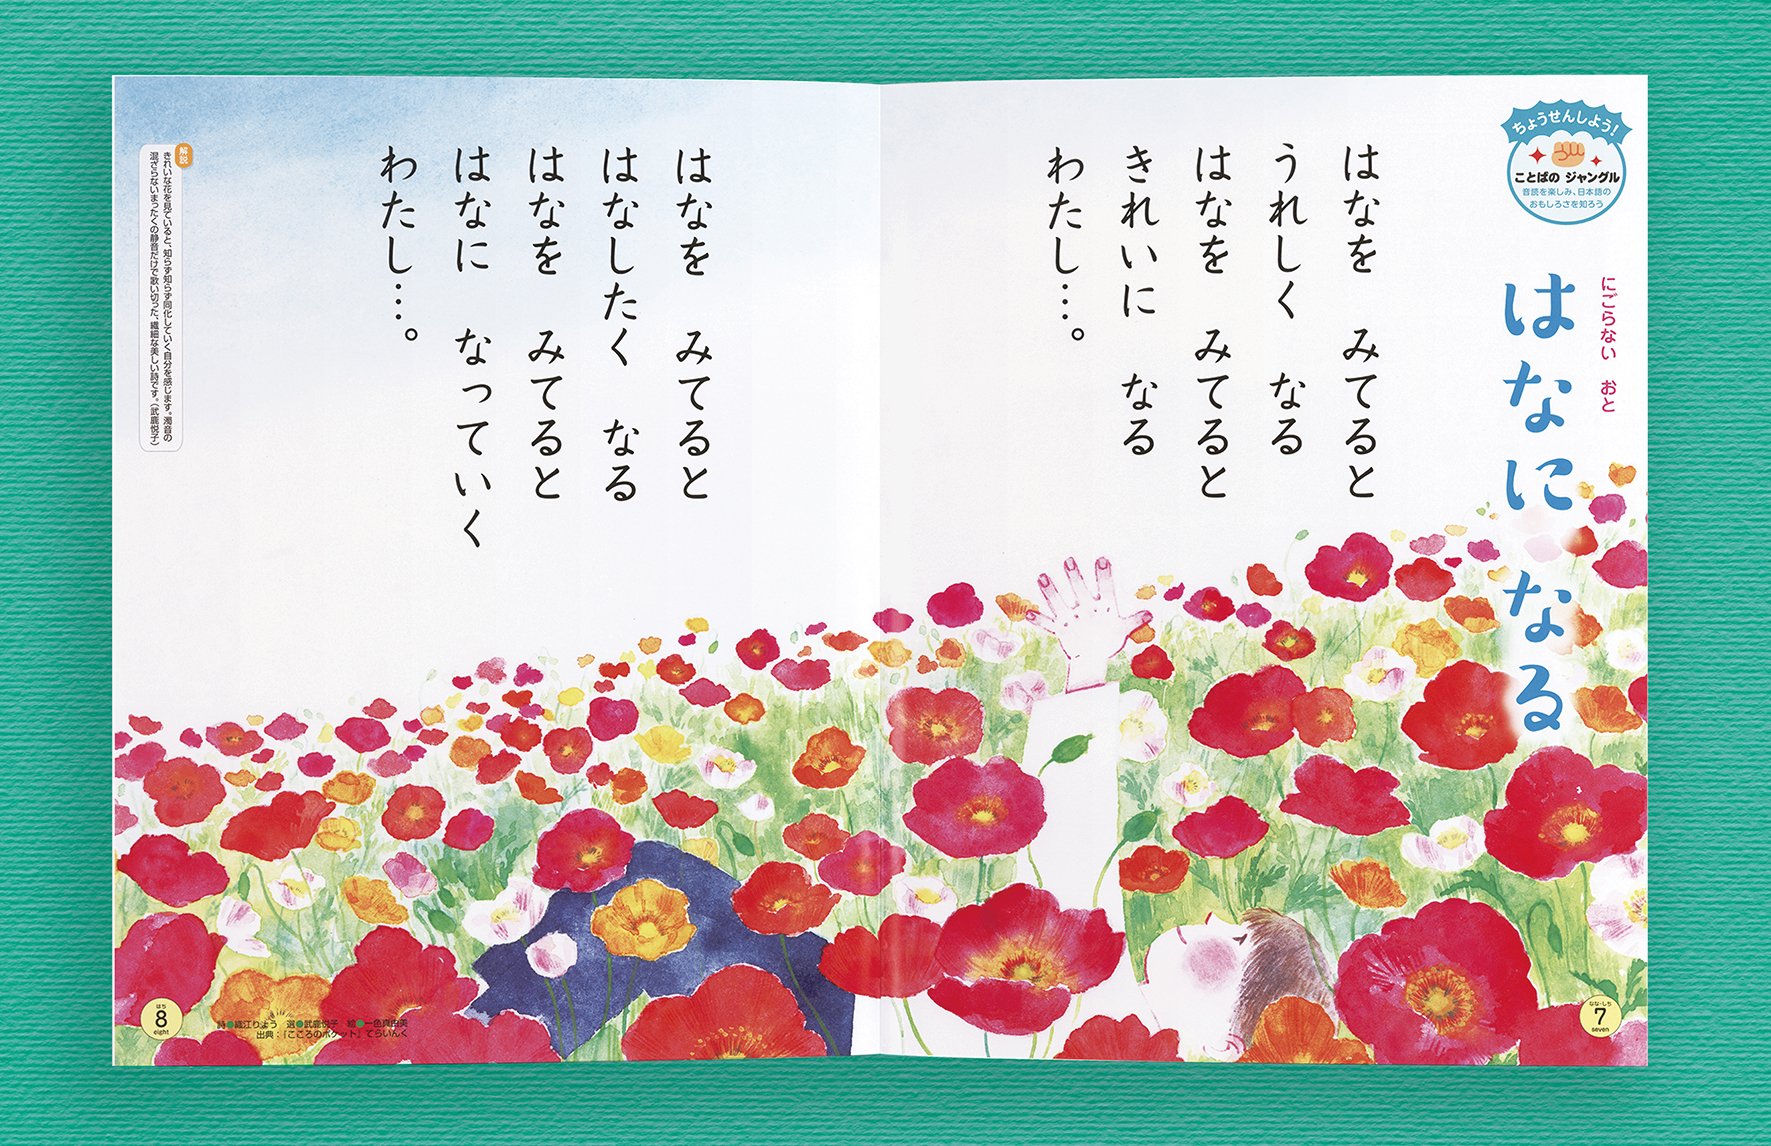 ちょうせんしよう!
ことばの ジャングル
音読を楽しみ、日本語の
おもしろさを知ろう
にごらない おと
はなに なる
はなを みてると
うれしく なる
はなを みてると
きれいに なる
わたし…。
なな・しち
7
seven
はなを みてると
はなしたく なる
はなを みてると
はなに なっていく
わたし…。
解説
きれいな花を見ていると、知らず知らず同化していく自分を感じます。濁音の
混ざらないまったくの静音だけで歌い切った、繊細な美しい詩です。(武鹿悦子)
はち
8
eight
詩●織江りょう 選●武鹿悦子 絵●一色真由美
出典:「こころのポケット」てらいんく